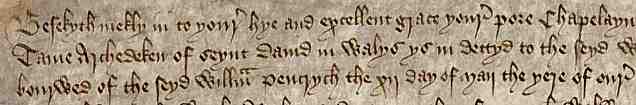 Besekyth mekly in to your hye and excellent grace your pore Chapelayn
Archedeken of Seynt Dauid in Walys ys in dettyd to the seyd W
borwed of the seyd Willm Pencrych the xii day of Maii the yere of our